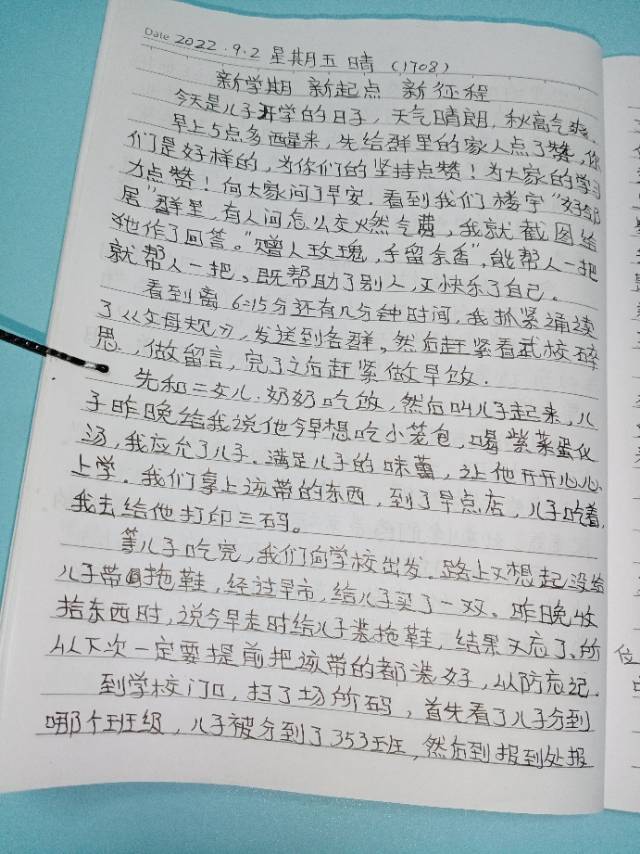 Date 2022.9.2 星期五 晴 (1708)
新学期 新起点 新征程
今天是儿子开学的日子，天气晴朗，秋高气爽。
早上5点多醒来，先给群里的家人点了赞，你
们是好样的，为你们的坚持点赞！为大家的学习
力点赞！向大家问了早安。看到我们楼宇“好邻
居”群里，有人问怎么交燃气费，我就截图给
她作了回答。“赠人玫瑰，手留余香”，能帮人一把
就帮人一把，既帮助了别人，又快乐了自己。
看到离6:15分还有几分钟时间，我抓紧诵读
了《父母规》，发送到各群，然后赶紧看武校碎
思，做留言，完了之后赶紧做早饭．
先和三女儿．奶奶吃饭，然后叫儿子起来，儿
子昨晚给我说他今早想吃小笼包，喝紫菜蛋化
汤，我应允了儿子．满足儿子的味蕾，让他开开心心
上学．我们拿上该带的东西，到了早点店，儿子吃着，
我去给他打印三码。
等儿子吃完，我们向学校出发．路上又想起没给
儿子带拖鞋，经过早市，给儿子买了一双．昨晚收
拾东西时，说今早走时给儿子装拖鞋，结果又忘了．所
以下次一定要提前把该带的都装好，以防忘记．
到学校门口，扫了场所码，首先看了儿子分到
哪个班级，儿子被分到了353班，然后到报到处报
位